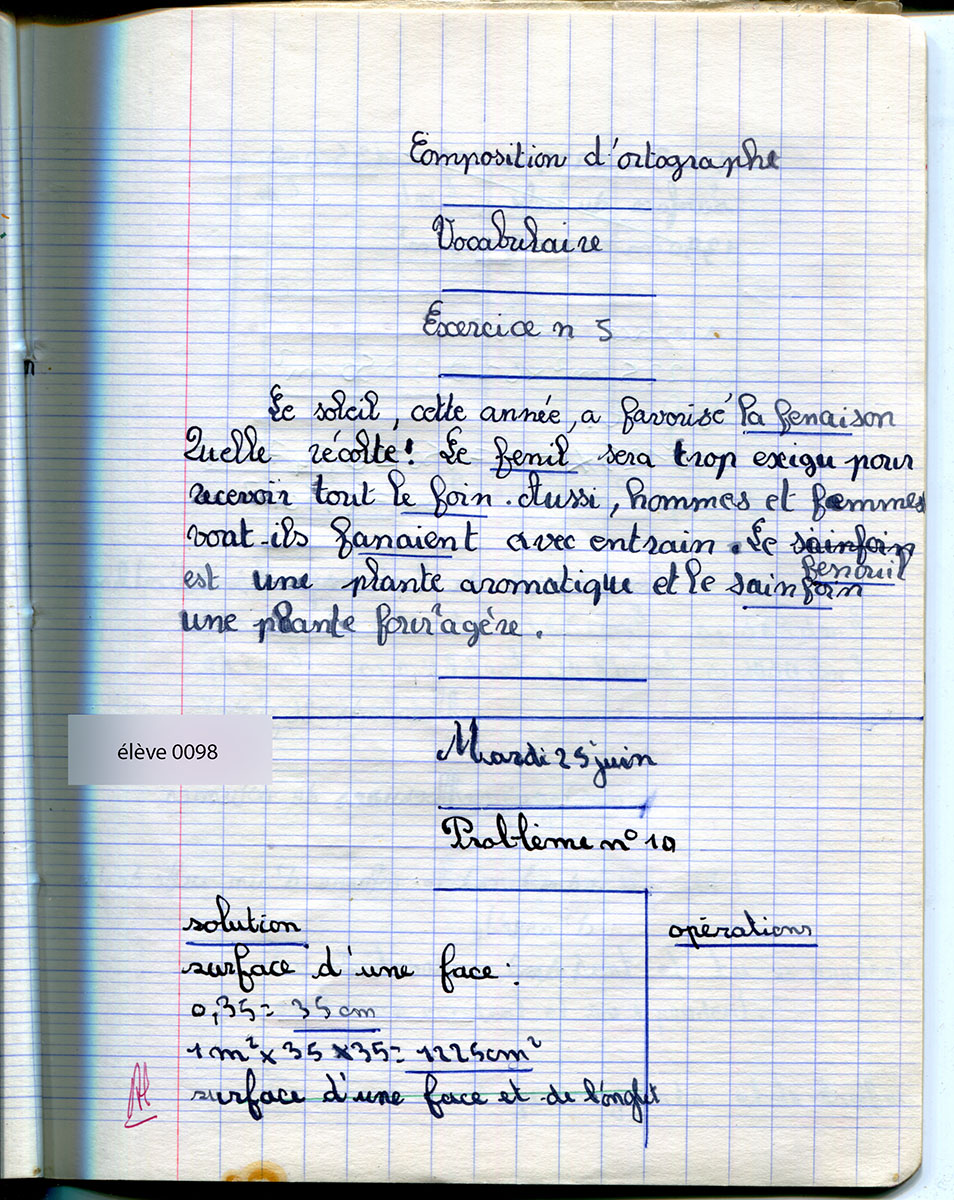 Composition d'ortographe
Vocabulaire
Exercice n 5
Le soleil, cette année, a favorisé la fenaison
Quelle récolte! Le fenil sera trop exigu pour
recevoir tout le foin. Aussi, hommes et femmes
vont-ils fanaient avec entrain. Le sainfoin
fenouil
est une plante aromatique et le sainfoin
une plante fourragère.
élève 0098
Mardi 25 juin
Problème n° 10
solution
opérations
surface d'une face:
0,35= 35 cm
1m² x 35 x 35= 1225cm²
surface d'une face et de l'onglet